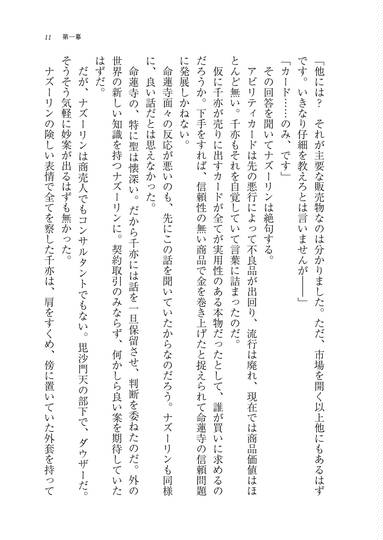 11　第一幕
「他には？　それが主要な販売物なのは分かりました。ただ、市場を開く以上他にもあるはず
です。いきなり仔細を教えろとは言いませんが――」
「カード……のみ、です」
その回答を聞いてナズーリンは絶句する。
アビリティカードは先の悪行によって不良品が出回り、流行は廃れ、現在では商品価値はほ
とんど無い。千亦もそれを自覚していて言葉に詰まったのだ。
仮に千亦が売りに出すカードが全てが実用性のある本物だったとして、誰が買いに求めるの
だろうか。下手をすれば、信頼性の無い商品で金を巻き上げたと捉えられて命蓮寺の信頼問題
に発展しかねない。
命蓮寺面々の反応が悪いのも、先にこの話を聞いていたからなのだろう。ナズーリンも同様
に、良い話だとは思えなかった。
命蓮寺の、特に聖は懐深い。だから千亦には話を一旦保留させ、判断を委ねたのだ。外の
世界の新しい知識を持つナズーリンに。契約取引のみならず、何かしら良い案を期待していた
はずだ。
だが、ナズーリンは商売人でもコンサルタントでもない。毘沙門天の部下で、ダウザーだ。
そうそう気軽に妙案が出るはずも無かった。
ナズーリンの険しい表情で全てを察した千亦は、肩をすくめ、傍に置いていた外套を持って